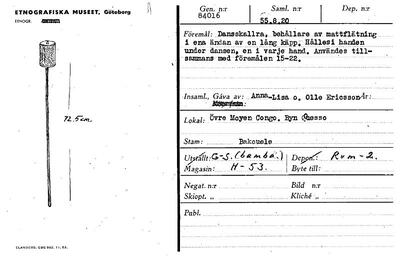 ETNOGRAFISKA MUSEET, Göteborg
ETNOGR.
72.5cm
ELANDERS, GBG 960. 11. 64.
Gen. n:r 84016
Saml. n:r 55.8.20
Dep. n:r
Föremål: Dansskallra, behållare av mattflätning
i ena ändan av en lång käpp. Hålles i handen
under dansen, en i varje hand. Användes till-
sammans med föremålen 15-22.
Insaml., Gåva av: Anna-Lisa o. Olle Ericsson År:
Lokal: Övre Moyen Congo.
Stam: Bakouele
Utställt: G-S. (bamba.) Depon.: Rum-2.
Magasin: H-53. Byte till:
Negat. n:r Bild n:r
Skiopt. „ Kliché „
Publ.